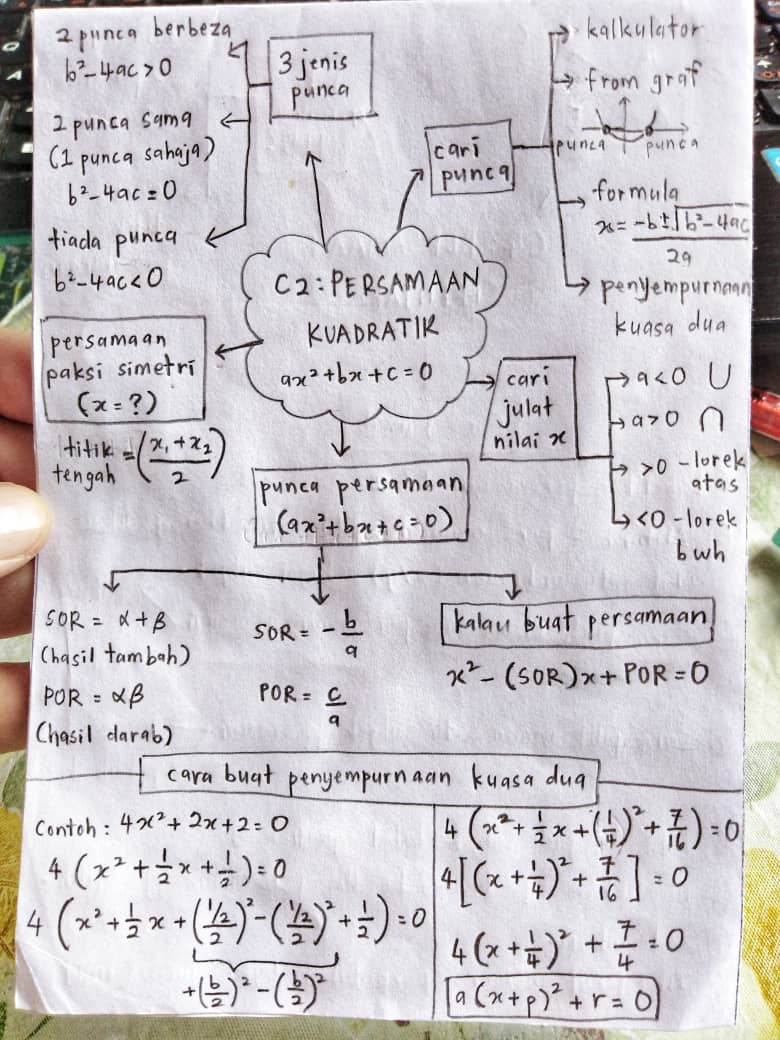 2 punca berbeza
b²-4ac>0
2 punca sama
(1 punca sahaja)
b²-4ac=0
tiada punca
b²-4ac<0
3 jenis
punca
cari
punca
kalkulator
from graf
punca punca
formula
x = -b±√b²-4ac
2a
penyempurnaan
kuasa dua
C2: PERSAMAAN
KUADRATIK
ax²+bx+c=0
persamaan
paksi simetri
(x=?)
titik = (x₁+x₂)
tengah 2
cari
julat
nilai x
a<0 ∪
a>0 ∩
>0 -lorek
atas
<0 -lorek
bwh
punca persamaan
(ax²+bx+c=0)
SOR = α+β
(hasil tambah)
POR = αβ
(hasil darab)
SOR = - b/a
POR = c/a
kalau buat persamaan
x² - (SOR)x + POR = 0
cara buat penyempurnaan kuasa dua
Contoh: 4x²+2x+2=0
4 (x² + 1/2 x + 1/2) = 0
4 (x² + 1/2 x + (1/2/2)² - (1/2/2)² + 1/2) = 0
+(b/2)² - (b/2)²
4 (x² + 1/2 x + (1/4)² + 7/16) = 0
4[(x + 1/4)² + 7/16] = 0
4(x + 1/4)² + 7/4 = 0
a(x+p)² + r = 0